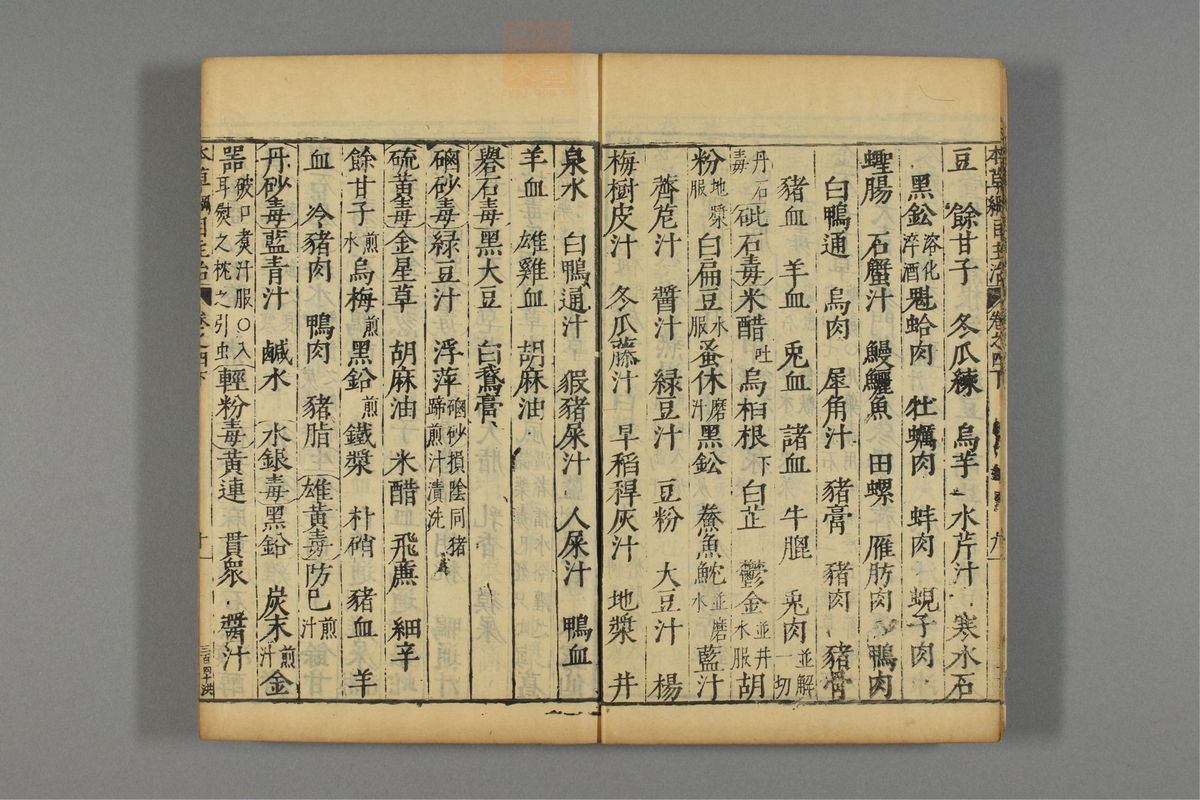 豆 餘甘子 冬瓜練 烏芋 水芹汁 寒水石
黑鈆溶化淬酒 魁蛤肉 牡蠣肉 蚌肉 蜆子肉
蟶腸 石蟹汁 鰻鱺魚 田螺 雁肪肉 鴨肉
白鴨通 烏肉 犀角汁 豬膏 豬肉 豬骨
豬血 羊血 兎血 諸血 牛腥 兎肉並解一切
丹石毒 砒石毒 米醋吐 烏桕根下 白芷 鬱金並井水服 胡
粉地漿服 白扁豆水服 蚤休磨汁 黑鈆 鮝魚 魷並磨水 藍汁
薺苨汁 醬汁 緑豆汁 豆粉 大豆汁 楊
梅樹皮汁 冬瓜藤汁 早稻稈灰汁 地漿 井
泉水 白鴨通汁 豭豬屎汁 人屎汁 鴨血
羊血 雄雞血 胡麻油
礜石毒 黑大豆 白鵞膏
硇砂毒 緑豆汁 浮萍硇砂損陰同猪蹄煎汁漬洗
硫黃毒 金星草 胡麻油 米醋 飛廉 細辛
餘甘子煎水 烏梅煎 黑鉛煎 鐵漿 朴硝 豬血 羊
血 冷豬肉 鴨肉 豬脂 雄黃毒 防已煎汁
丹砂毒 藍青汁 鹹水 水銀毒 黑鉛 炭末煎汁 金
器破口煮汁服○入耳熨之枕之引虫 輕粉毒 黃連 貫衆 醬汁